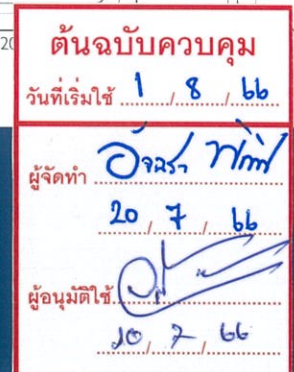 20
ต้นฉบับควบคุม
วันที่เริ่มใช้ 1 / 8 / 66
ผู้จัดทำ อัจฉรา
20 / 7 / 66
ผู้อนุมัติใช้
20 / 7 / 66